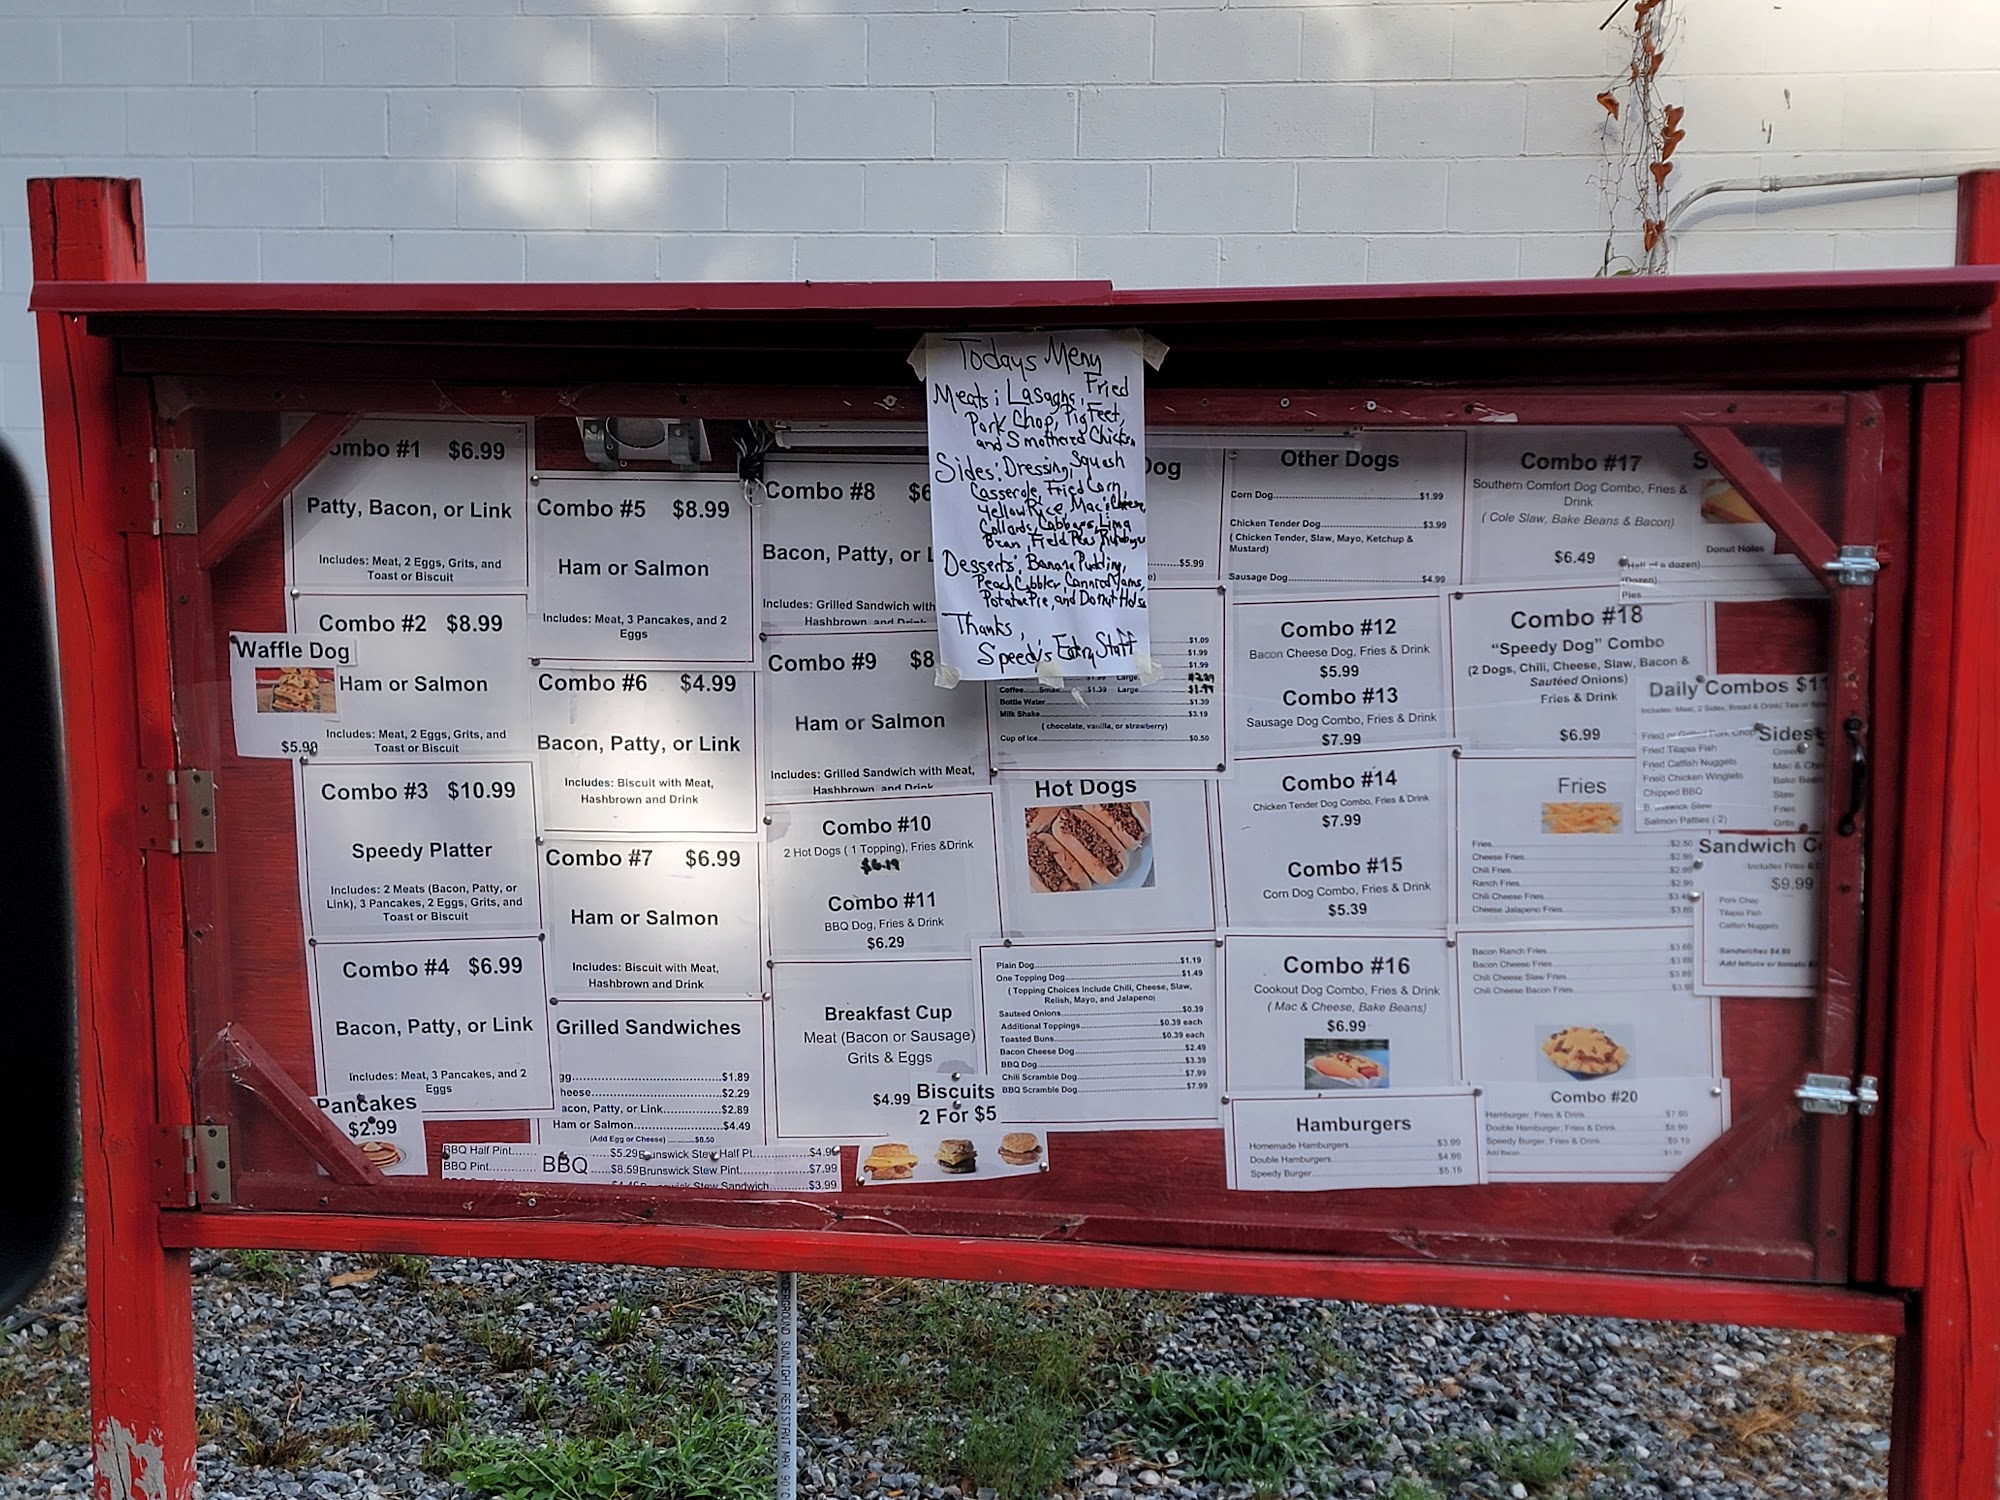 Combo #1 $6.99
Patty, Bacon, or Link
Includes: Meat, 2 Eggs, Grits, and
Toast or Biscuit
Combo #2 $8.99
Ham or Salmon
Includes: Meat, 2 Eggs, Grits, and
Toast or Biscuit
Waffle Dog
$5.99
Combo #3 $10.99
Speedy Platter
Includes: 2 Meats (Bacon, Patty, or
Link), 3 Pancakes, 2 Eggs, Grits, and
Toast or Biscuit
Combo #4 $6.99
Bacon, Patty, or Link
Includes: Meat, 3 Pancakes, and 2
Eggs
Pancakes
$2.99
Combo #5 $8.99
Ham or Salmon
Includes: Meat, 3 Pancakes, and 2
Eggs
Combo #6 $4.99
Bacon, Patty, or Link
Includes: Biscuit with Meat,
Hashbrown and Drink
Combo #7 $6.99
Ham or Salmon
Includes: Biscuit with Meat,
Hashbrown and Drink
Grilled Sandwiches
gg $1.89
heese $2.29
acon, Patty, or Link $2.89
Ham or Salmon $4.49
(Add Egg or Cheese) $0.50
BBQ Half Pint $5.29
BBQ Pint $8.59
BBQ
Brunswick Stew Half Pt $4.99
Brunswick Stew Pint $7.99
Brunswick Stew Sandwich $3.99
Combo #8 $6
Bacon, Patty, or L
Includes: Grilled Sandwich with
Hashbrown and Drink
Combo #9 $8
Ham or Salmon
Includes: Grilled Sandwich with Meat,
Hashbrown and Drink
Combo #10
2 Hot Dogs ( 1 Topping), Fries &Drink
$6.19
Combo #11
BBQ Dog, Fries & Drink
$6.29
Breakfast Cup
Meat (Bacon or Sausage)
Grits & Eggs
$4.99
Biscuits
2 For $5
Todays Menu
Meats: Lasagna, Fried
Pork Chop, Pig Feet,
and Smothered Chicken
Sides: Dressing, Squash
Casserole, Fried Corn,
Yellow Rice, Mac & Cheese,
Collards, Cabbage, Lima
Bean, Field Peas
Desserts: Banana Pudding,
Peach Cobbler, Yams,
Potatoe Pie, and Donut Holes
Thanks,
Speedy's Eatery Staff
Dog
$5.99
$1.09
$1.99
$1.99
$1.99 Large $2.29
Coffee Small $1.39 Large $1.99
Bottle Water $1.39
Milk Shake $3.19
( chocolate, vanilla, or strawberry)
Cup of ice $0.50
Hot Dogs
Plain Dog $1.19
One Topping Dog $1.49
( Topping Choices Include Chili, Cheese, Slaw,
Relish, Mayo, and Jalapeno)
Sauteed Onions $0.39
Additional Toppings $0.39 each
Toasted Buns $0.39 each
Bacon Cheese Dog $2.49
BBQ Dog $3.39
Chili Scramble Dog $7.99
BBQ Scramble Dog $7.99
Other Dogs
Corn Dog $1.99
Chicken Tender Dog $3.99
( Chicken Tender, Slaw, Mayo, Ketchup &
Mustard)
Sausage Dog $4.99
Combo #12
Bacon Cheese Dog, Fries & Drink
$5.99
Combo #13
Sausage Dog Combo, Fries & Drink
$7.99
Combo #14
Chicken Tender Dog Combo, Fries & Drink
$7.99
Combo #15
Corn Dog Combo, Fries & Drink
$5.39
Combo #16
Cookout Dog Combo, Fries & Drink
( Mac & Cheese, Bake Beans)
$6.99
Hamburgers
Homemade Hamburgers $3.99
Double Hamburgers $4.99
Speedy Burger $5.19
Combo #17
Southern Comfort Dog Combo, Fries &
Drink
( Cole Slaw, Bake Beans & Bacon)
$6.49
Donut Holes
(Half of a dozen)
(Dozen)
Pies
Combo #18
“Speedy Dog” Combo
(2 Dogs, Chili, Cheese, Slaw, Bacon &
Sautéed Onions)
Fries & Drink
$6.99
Fries
Fries $2.50
Cheese Fries $2.99
Chili Fries $2.99
Ranch Fries $2.99
Chili Cheese Fries $3.49
Cheese Jalapeno Fries $3.69
Bacon Ranch Fries $3.69
Bacon Cheese Fries $3.69
Chili Cheese Slaw Fries $3.89
Chili Cheese Bacon Fries
Combo #20
Hamburger, Fries & Drink $7.99
Double Hamburger, Fries & Drink $8.99
Speedy Burger, Fries & Drink $9.19
Add Bacon
Daily Combos $11
Includes: Meat, 2 Sides, Bread & Drink
Fried or Grilled Pork Chop
Fried Tilapia Fish
Fried Catfish Nuggets
Fried Chicken Winglets
Chipped BBQ
Brunswick Stew
Salmon Patties ( 2)
Sides
Green
Mac & Che
Bake Bean
Slaw
Fries
Grits
Sandwich C
Includes Fries &
$9.99
Pork Chop
Tilapia Fish
Catfish Nuggets
Sandwiches $4.99
Add lettuce or tomato
UNDERGROUND SUNLIGHT RESISTANT MAX 90°C